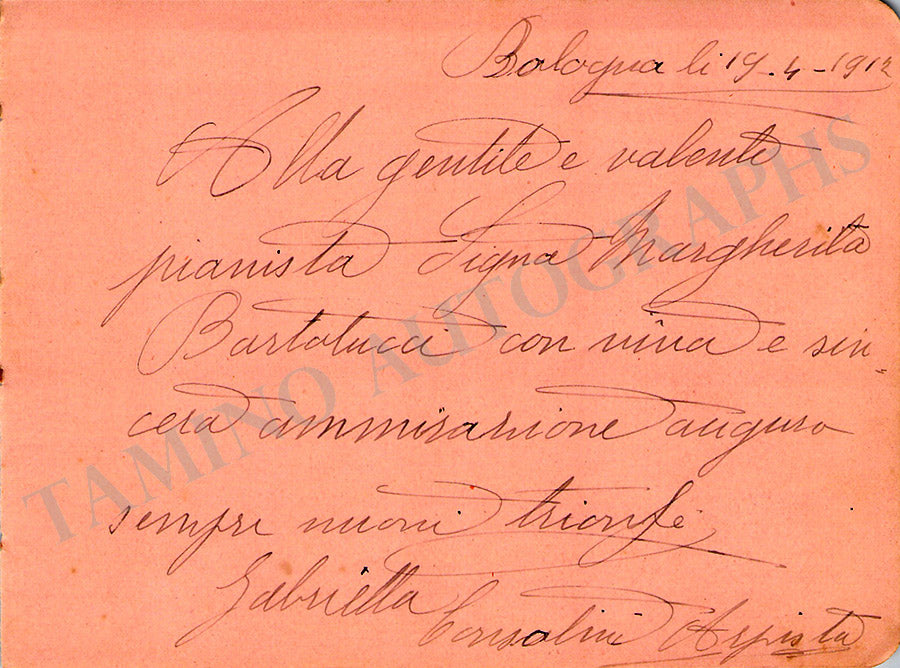 Bologna li 19-4-1912
Alla gentile e valente
pianista Signa Margherita
Bartolucci con viva e sin-
cera ammirazione auguro
sempre nuovi trionfi
Gabriella
Consolini Arpista
TAMINO AUTOGRAPHS